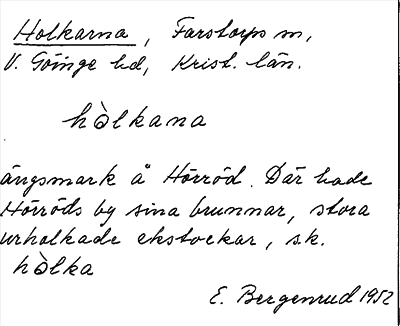 Holkarna, Farstorps sn,
V. Göinge hd, Krist. län.
hòlkana
ängsmark å Hörröd. Där hade
Hörröds by sina brunnar, stora
urholkade ekstockar, s.k.
hòlka
E. Bergenrud 1952